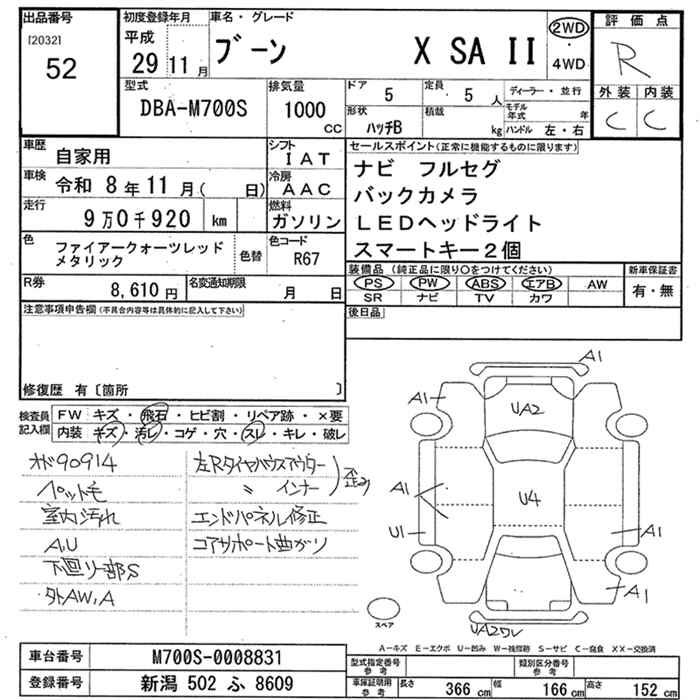 出品番号
[2032]
52
初度登録年月
平成
29 11 月
車名・グレード
ブーン X SA II
2WD
・
4WD
評価点
R
外装 内装
C C
型式
DBA-M700S
排気量
1000
CC
ドア
5
定員
5 人
ディーラー・並行
形状
ハッチB
積載
kg
モデル年式 年
ハンドル 左・右
車歴
自家用
シフト
I A T
車検
令和 8 年 11 月 ( 日)
冷房
A A C
走行
9 万 0 千 920 km
燃料
ガソリン
色
ファイアークォーツレッド
メタリック
色替
色コード
R67
R券
8,610 円
名変通知期限
月 日
セールスポイント(正常に機能するものに限ります)
ナビ フルセグ
バックカメラ
LEDヘッドライト
スマートキー2個
装備品 (純正品に限り〇をつけてください)
新車保証書
PS PW ABS エアB AW
SR ナビ TV カワ
有・無
後日品
注意事項申告欄(不具合内容等は具体的に記入して下さい)
修復歴 有〔箇所 〕
検査員
記入欄
FW キズ・飛石・ヒビ割・リペア跡・×要
内装 キズ・汚レ・コゲ・穴・スレ・キレ・破レ
オド90914
ペット毛
室内汚れ
A,U
下回リ一部S
外AW,A
左Rタイヤハウスアウター
〃 インナー
歪み
エンドパネル修正
コアサポート曲がり
A1
A1
UA2
A1
U4
U1
A1
A1
UA2ワレ
スペア
A-キズ E-エクボ U-凹み W-補修跡 S-サビ C-腐食 XX-交換済
車台番号
M700S-0008831
登録番号
新潟 502 ふ 8609
型式指定番号
参考
類別区分番号
参考
車庫証明用
参考
長さ 366 cm
幅 166 cm
高さ 152 cm